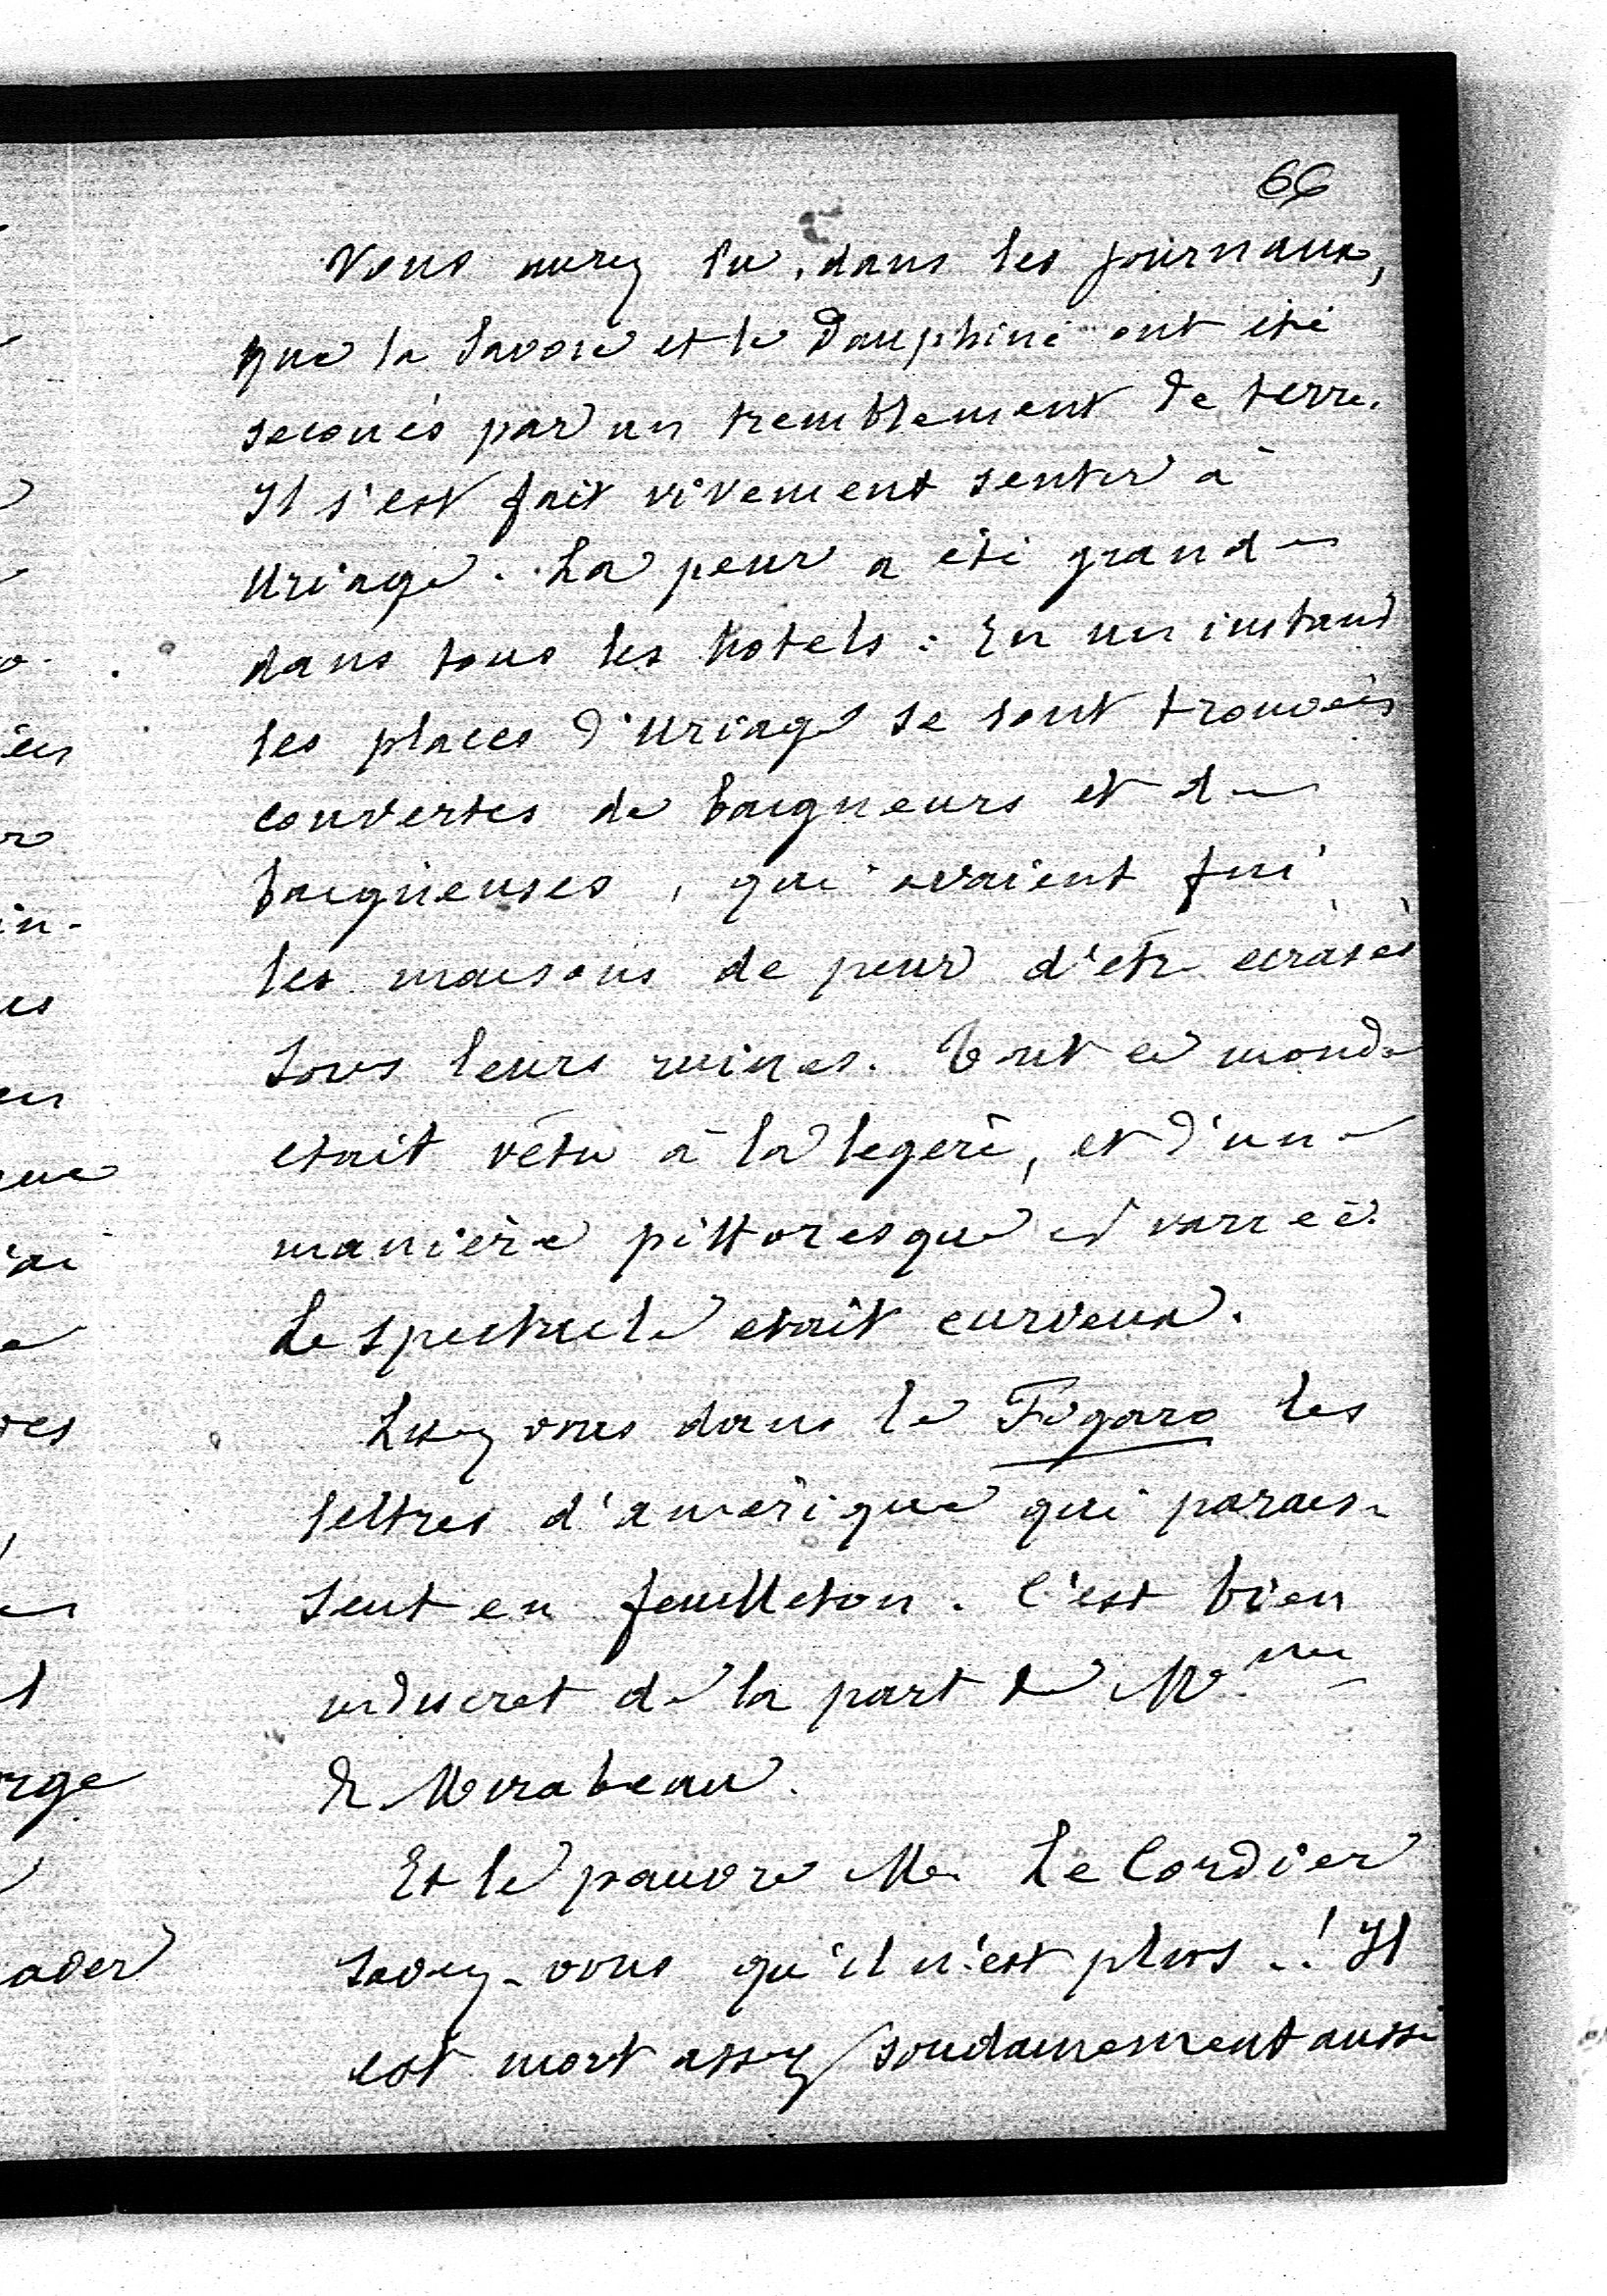 66
Vous aurez lu, dans les journaux,
que la Savoie et le Dauphiné ont été
secoués par un tremblement de terre.
Il s'est fait vivement sentir à
Uriage. La peur a été grande
dans tous les hotels : En un instant
les places d'Uriage se sont trouvées
couvertes de baigneurs et de
baigneuses, qui avaient fui
les maisons de peur d'etre ecrasés
sous leurs ruines. Tout ce monde
etait vêtu à la legere, et d'une
manière pittoresque et variée.
Le spectacle etait curieux.
Lisez vous dans le Figaro les
lettres d'amérique qui parais-
sent en feuilleton. C'est bien
indiscret de la part de Mme
de Mirabeau.
Et le pauvre Mr Le Cordier
savez-vous qu'il n'est plus..! Il
est mort assez soudainement aussi